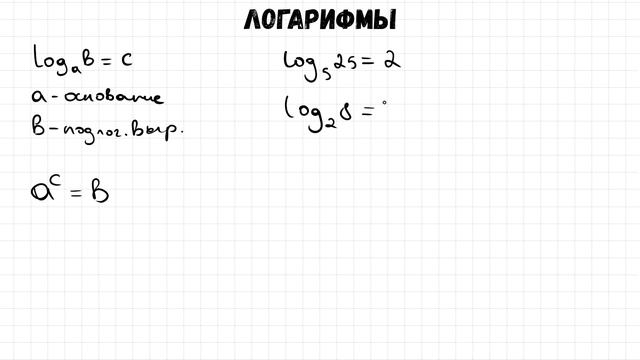 ЛОГАРИФМЫ
logₐb = c
a - основание
b - подлог. выр.
aᶜ = b
log₅25 = 2
log₂8 =